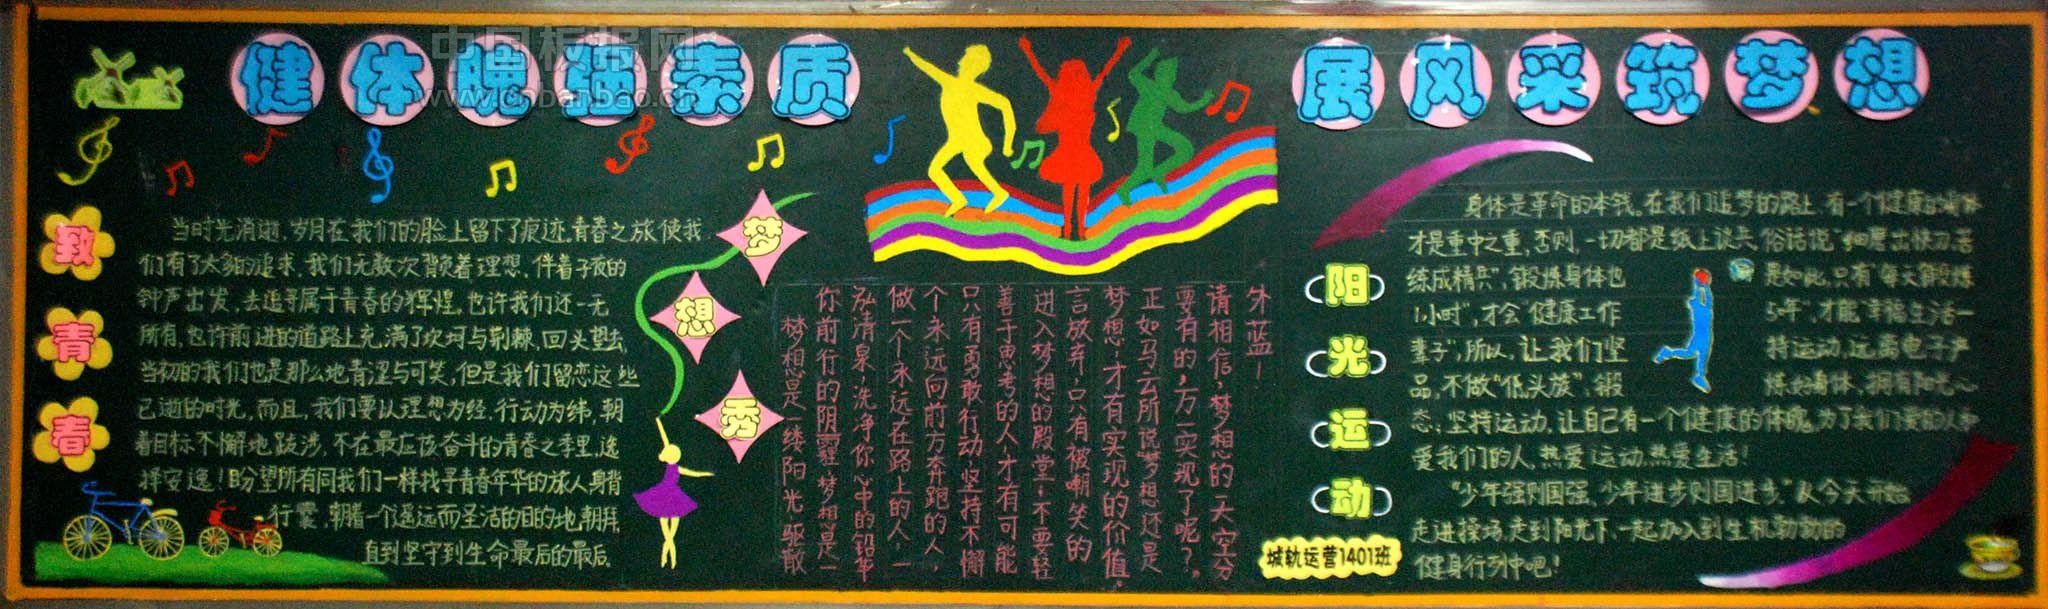 中国板报网
www.cnbanbao.cn
健体魄强素质
展风采筑梦想
致青春
当时光消逝,岁月在我们的脸上留下了痕迹,青春之旅使我
们有了太多的追求,我们无数次背负着理想,伴着子夜的
钟声出发,去追寻属于青春的辉煌,也许我们还一无
所有,也许前进的道路上充满了坎坷与荆棘,回头望去,
当初的我们也是那么地青涩与可笑,但是我们留恋这些
已逝的时光,而且,我们要以理想为经,行动为纬,朝
着目标不懈地跋涉,不在最应该奋斗的青春之季里,选
择安逸!盼望所有同我们一样找寻青春年华的旅人身背
行囊,朝着一个遥远而圣洁的目的地,朝拜,
直到坚守到生命最后的最后。
梦想秀
梦想是一缕阳光,驱散
你前行的阴霾,梦想是一
泓清泉,洗净你心中的铅华
做一个永远在路上的人,一
个永远向前方奔跑的人,
只有勇敢行动,坚持不懈
善于思考的人,才有可能
进入梦想的殿堂,不要轻
言放弃,只有被嘲笑的
梦想,才有实现的价值。
正如马云所说"梦想还是
要有的,万一实现了呢?"。
请相信,梦想的天空分
外蓝!
阳光运动
身体是革命的本钱,在我们追梦的路上,有一个健康的身体
才是重中之重,否则,一切都是纸上谈兵,俗话说"细磨出快刀,苦
练成精兵",锻炼身体也是如此,只有"每天锻炼
1小时",才会"健康工作5年",才能"幸福生活一
辈子",所以,让我们坚持运动,远离电子产
品,不做"低头族",锻炼好身体,拥有阳光心
态;坚持运动,让自己有一个健康的体魄,为了我们爱的人和
爱我们的人,热爱运动,热爱生活!
"少年强则国强,少年进步则国进步,"从今天开始
走进操场,走到阳光下,一起加入到生机勃勃的
健身行列中吧!
城轨运营1401班